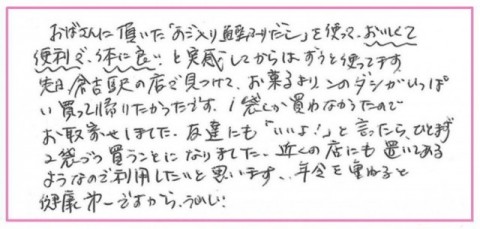 おばさんに頂いた「あご入り鰹ふりだし」を使って、おいしくて
便利で、体に良い と実感してからは、ずっと使ってます
先日、倉吉駅の店で見つけて、お菓子よりこのダシがいっぱ
い買って帰りたかったです。1袋しか買わなかったので
お取寄せしました。友達にも「いいよ!」と言ったら、ひとまず
2袋づつ買うことになりました。近くの店にも置いてある
ようなので利用したいと思います、年令を重ねると
健康第一ですから、うれしい